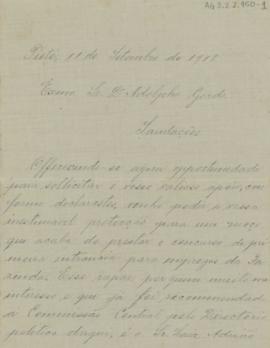 AG 3.2.2.950-1
Pieté, 11 de Setembro de 1918
Exmo Sr. Dr. Adolpho Gordo
Saudações
Offerecendo-se agora opportunidade
para sollicitar o vosso valioso apoio, con
forme declarastes, venho pedir a vossa
inestimavel protecção para um moço
que acaba de prestar o concurso de pri
meira intrancia para empregos de Fa
zenda. Esse rapaz por quem muito me
interesso e que já foi recommendado
á Commissão Central pelo Directorio
politico daqui, é o Sr. Luiz Adrião